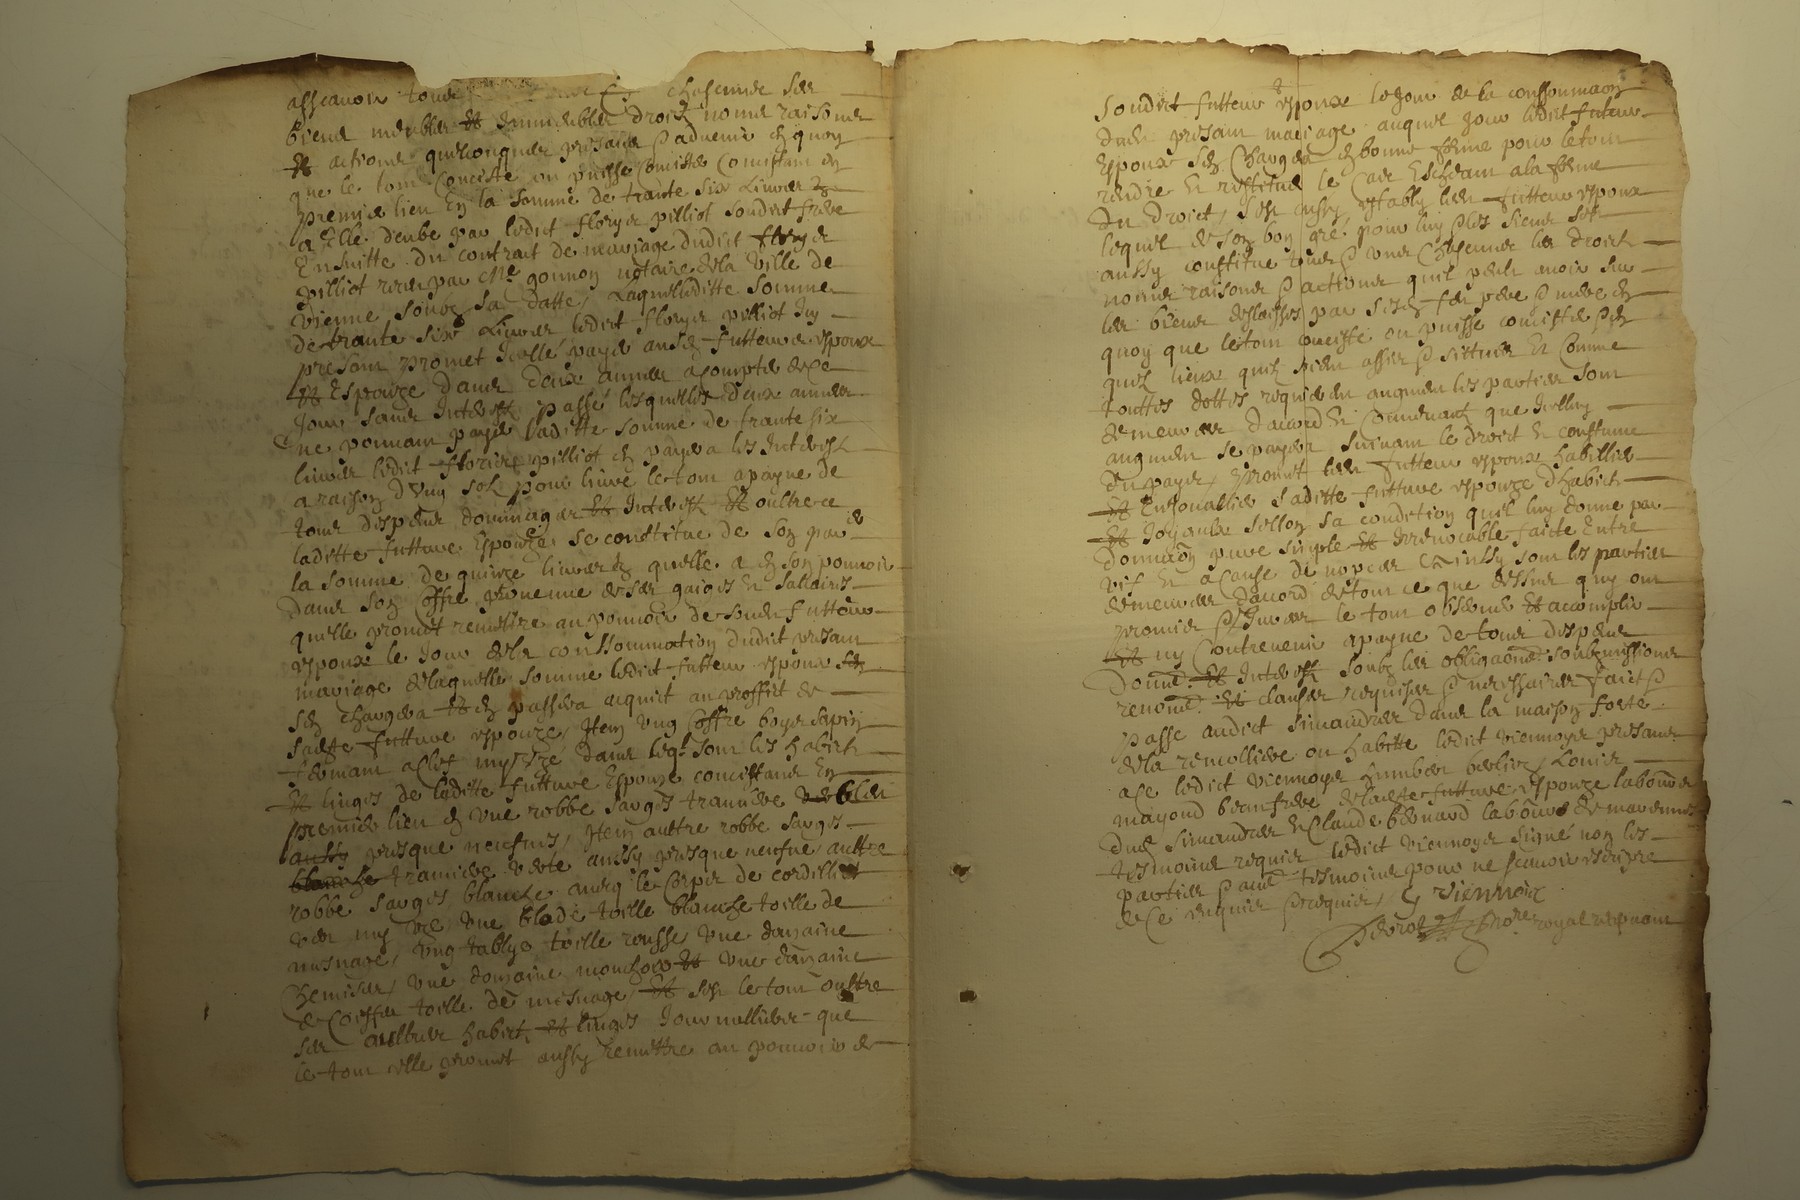 assçavoir tous chascune ses
biens meubles et immeubles droictz noms raisons
et actions quelconques presans & advenir en quoy
que le tout conciste ou puisse concister concistant en
premier lieu en la somme de trante six livres
a elle deube par ledict florys pilliot sondict frere
ensuitte du contrait de mariage dudict florys
pilliot receu par Me gonnon notaire de la ville de
vienne soubz sa datte, laquelleditte somme
de trante six livres ledict florys pilliot icy
presant promet icelle payer ausd futteurs espoux
et espouze dans deux annees a compter de ce
jour sans interest passé lesquelles deux annees
ne pouvant payer laditte somme de trante six
livres ledict florys pilliot en payera les interestz
a raison d'ung solz pour livre le tout a payne de
tous despens dommages et interestz et oultre ce
laditte future espouze se constitue de son gre
la somme de quinze livres quelle a en son pouvoir
dans son coffre provenue de ses gaiges et sallaires
quelle promet remettre au pouvoir de sondit futteur
espoux le jour de la consommation dudict presant
mariage de laquelle somme ledict futteur espoux
sen chargera et en passera acquict au proffict de
sadite future espouze, Item ung coffre boys sapin
fermant a clef my uzé dans leql sont les habitz
et linges de laditte future espouze concistans en
premier lieu en une robbe sarges tramiere
presque neufves, Item aultre robbe sarges
tramiere verte aussy presque neufve, aultre
robbe sarges blanche avecq le corps de cordilliat
vert my uzé, une blode toille blanche toille de
mesnage, ung tablyé toille rousse, une douzaine
chemises, une douzaine mouchoirs et une douzaine
de coiffes toille de mesnage, et cest le tout oultre
ses aultres habitz et linges journalliers que
le tout elle promet aussy remettre au pouvoir de
sondict futteur espoux le jour de la consommaon
dud presant mariage auquel jour ledict futeur
espoux sen chargera en bonne forme pour le tout
rendre et restituer le cas escheant a la forme
du droict, sest aussy estably led futteur espoux
lequel de son bon gré pour luy & les siens sest
aussy constitue tous & uns chascuns les droictz
noms raisons & actions quil peult avoir sur
les biens delaisses par sesd feu pere & mere en
quoy que le tout conciste ou puisse concister & en
quelz lieux quilz soient assis & sittués et comme
touttes dottes requierent augment les parties sont
demeurees daccord et convenantz que icelluy
augment se payera suivant le droict et coustume
du payes, promet led futteur espoux habillier
et enjoualler saditte future espouze d'habitz
et joyaulx sellon sa condition quil luy donne par
donnaon pure simple et irrevocable faicte entre
vifz et a cause de nopces et ainssy sont les parties
demeurees daccord de tout ce que dessus quy ont
promis & jurees le tout observer et accomplir
et ny contrevenir a payne de tous despens
dommes et interestz soubz les obligaons soubzmissions
renon et clauses requises & necessaires faict &
passé audict simandres dans la maison forte
de la rencolliere ou habitte ledict viennoys presans
a ce ledict viennoys humbert berlier, Louis
mayoud beaufrere de ladte future espouze laboureur
dud simandres et Claude bernard laboureur de marennes
tesmoins requis, ledict viennoys signé non les
parties & aultres tesmoins pour ne scavoir escripre
de ce enquis & requis, G viennois
no.re royal recepvant